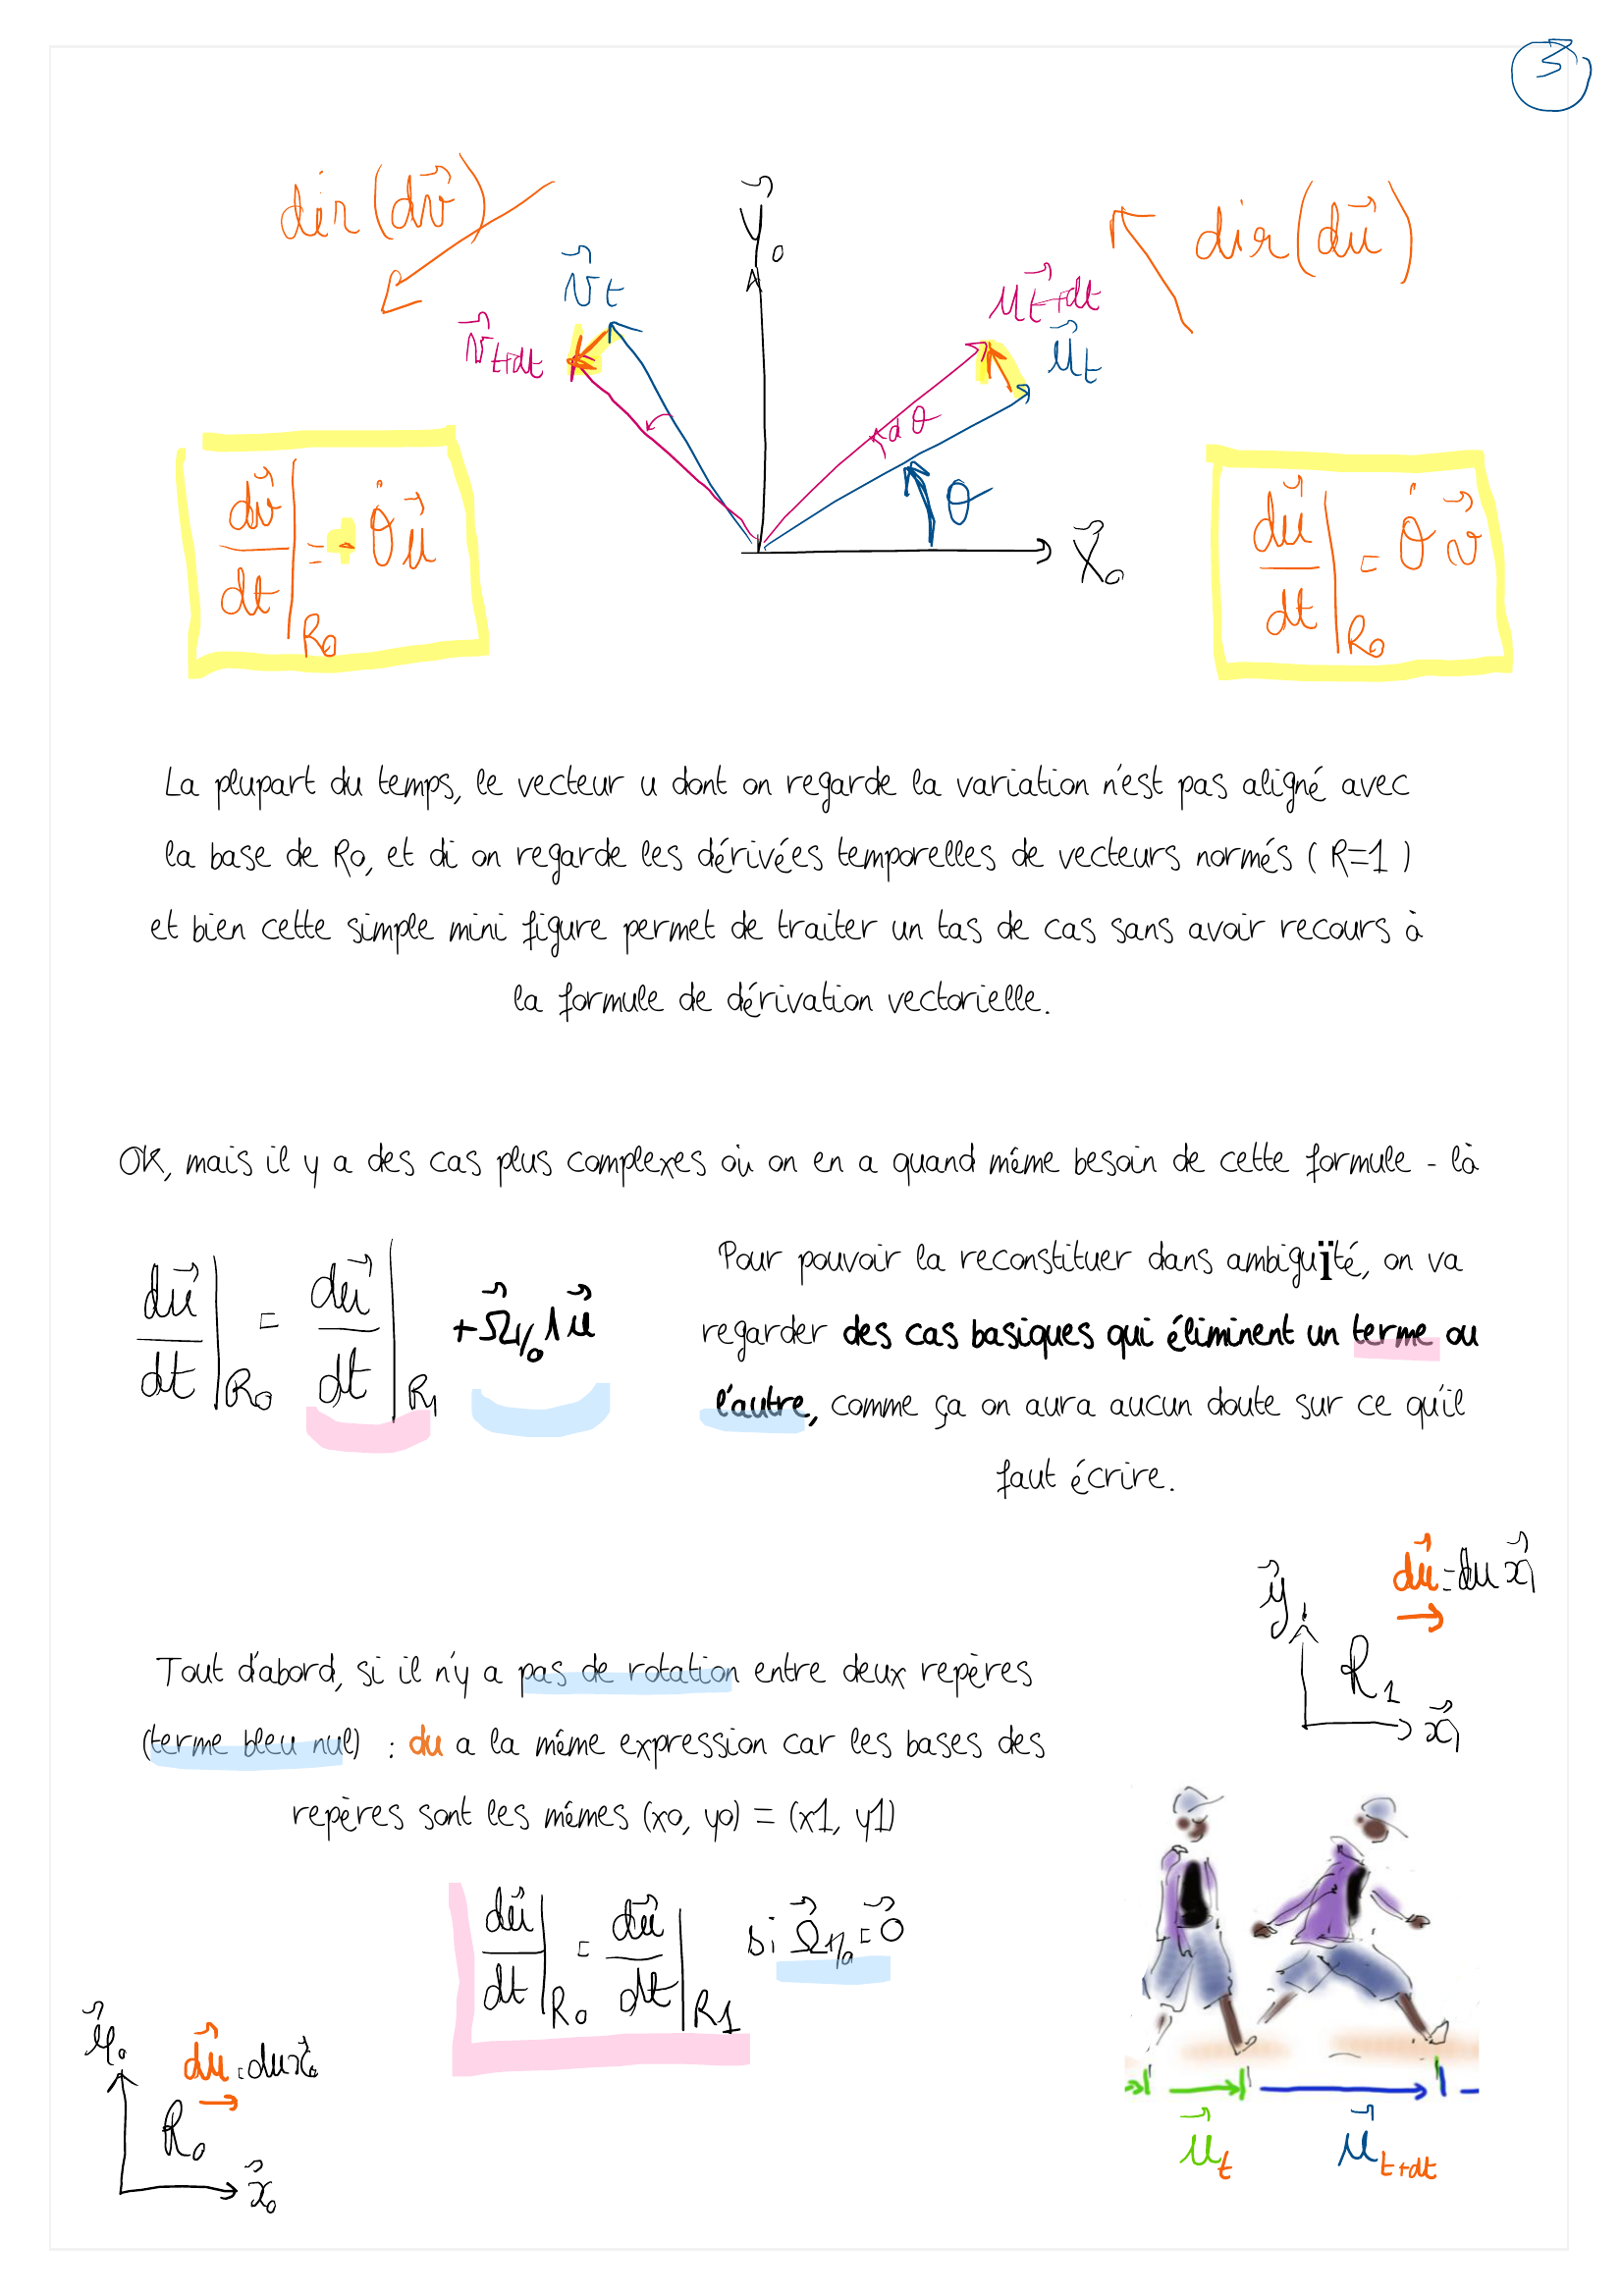 3
dir(dv⃗)
Y⃗₀
dir(du⃗)
v⃗t
u⃗t+dt
v⃗t+dt
u⃗t
dθ
θ
X⃗₀
dv⃗/dt|R₀ = - θ̇ u⃗
du⃗/dt|R₀ = θ̇ v⃗
La plupart du temps, le vecteur u dont on regarde la variation n'est pas aligné avec
la base de R0, et di on regarde les dérivées temporelles de vecteurs normés ( R=1 )
et bien cette simple mini figure permet de traiter un tas de cas sans avoir recours à
la formule de dérivation vectorielle.
OK, mais il y a des cas plus complexes où on en a quand même besoin de cette formule - là
du⃗/dt|R₀ = du⃗/dt|R₁ + Ω⃗1/0 ∧ u⃗
Pour pouvoir la reconstituer dans ambiguïté, on va
regarder des cas basiques qui éliminent un terme ou
l'autre, comme ça on aura aucun doute sur ce qu'il
faut écrire.
du⃗ = du x⃗₁
y⃗₁
R₁
x⃗₁
Tout d'abord, si il n'y a pas de rotation entre deux repères
(terme bleu nul) : du a la même expression car les bases des
repères sont les mêmes (x0, y0) = (x1, y1)
du⃗/dt|R₀ = du⃗/dt|R1 si Ω⃗1/0 = 0⃗
y⃗₀
du⃗ = du x⃗₀
R₀
x⃗₀
u⃗t
u⃗t+dt